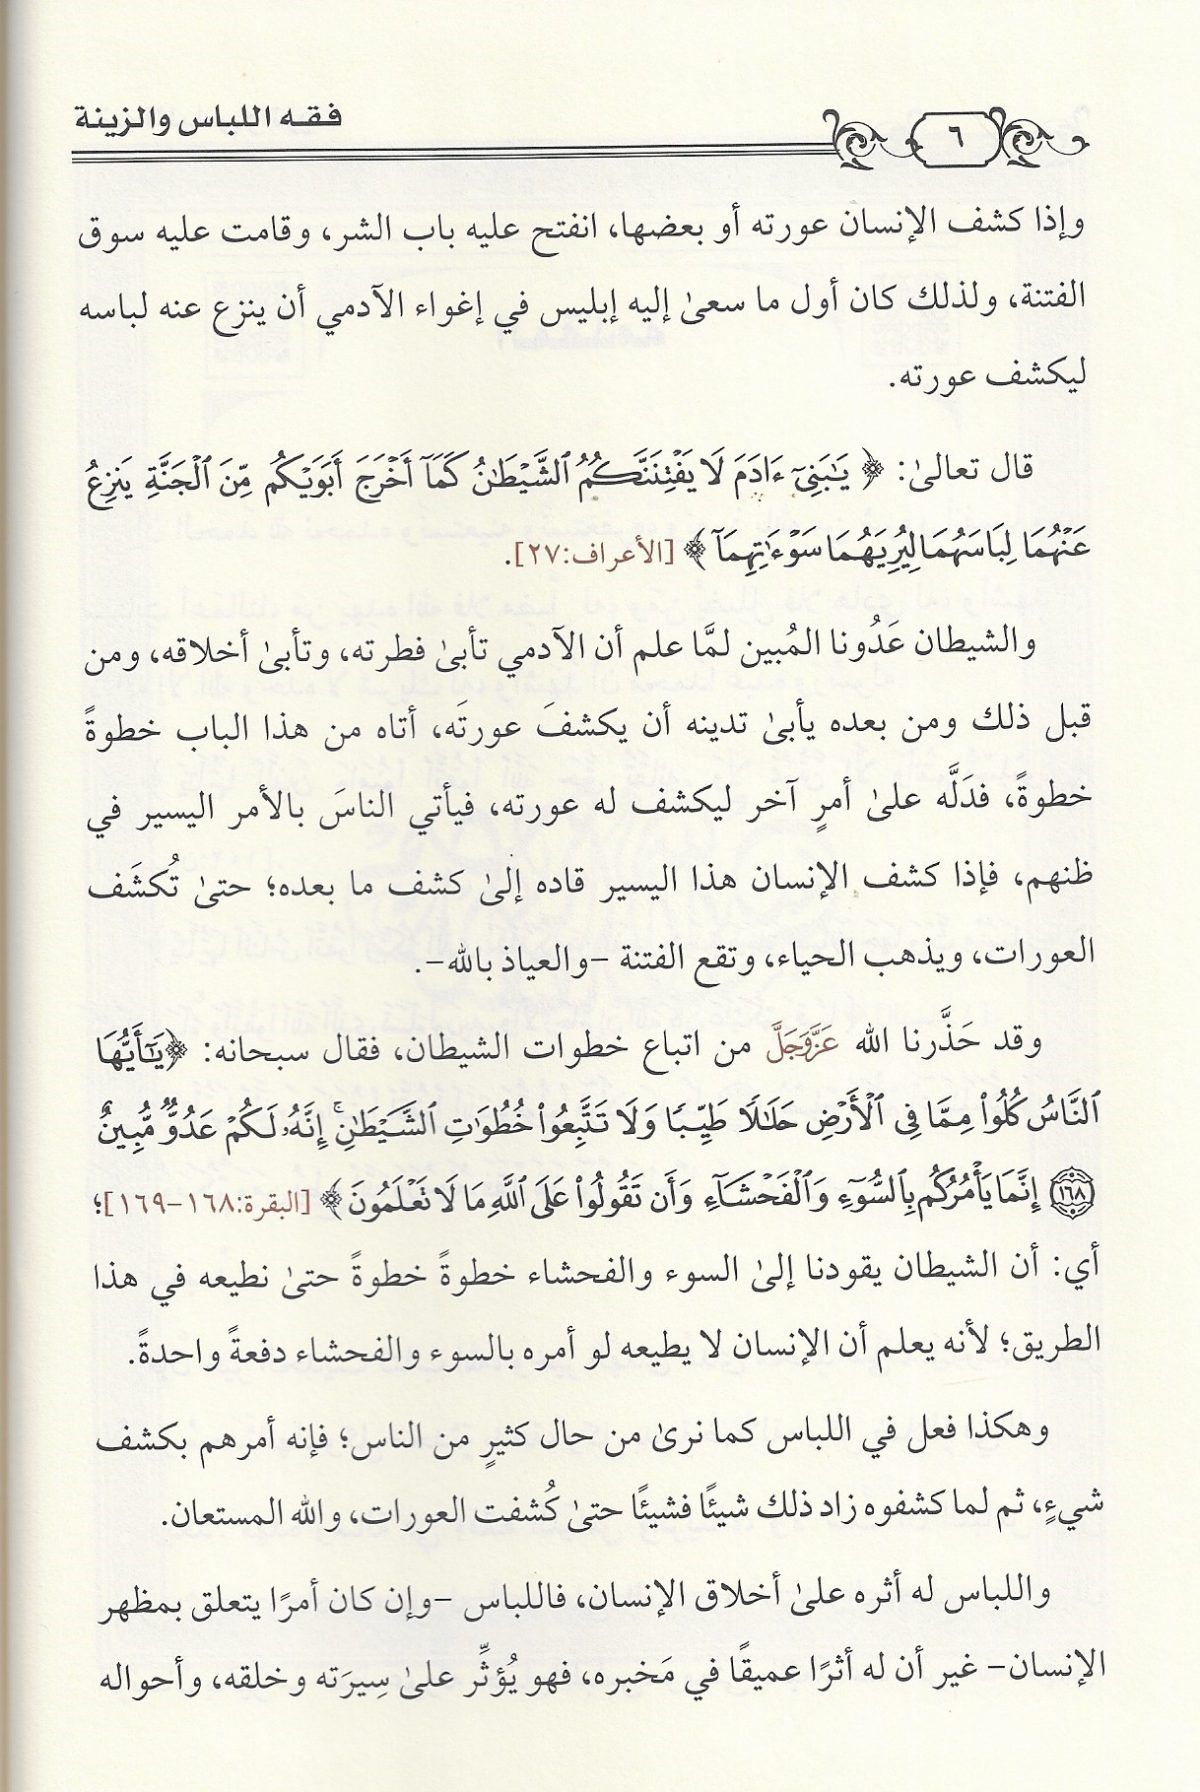 فقه اللباس والزينة
٦
وإذا كشف الإنسان عورته أو بعضها، انفتح عليه باب الشر، وقامت عليه سوق
الفتنة، ولذلك كان أول ما سعىٰ إليه إبليس في إغواء الآدمي أن ينزع عنه لباسه
ليكشف عورته.
قال تعالىٰ: ﴿ يَٰبَنِيٓ ءَادَمَ لَا يَفۡتِنَنَّكُمُ ٱلشَّيۡطَٰنُ كَمَآ أَخۡرَجَ أَبَوَيۡكُم مِّنَ ٱلۡجَنَّةِ يَنزِعُ
عَنۡهُمَا لِبَاسَهُمَا لِيُرِيَهُمَا سَوۡءَٰتِهِمَآ ﴾ [الأعراف:٢٧].
والشيطان عَدُونا المُبين لمَّا علم أن الآدمي تأبىٰ فطرته، وتأبىٰ أخلاقه، ومن
قبل ذلك ومن بعده يأبىٰ تدينه أن يكشفَ عورتَه، أتاه من هذا الباب خطوةً
خطوةً، فدَلَّه علىٰ أمرٍ آخر ليكشف له عورته، فيأتي الناسَ بالأمر اليسير في
ظنهم، فإذا كشف الإنسان هذا اليسير قاده إلىٰ كشف ما بعده؛ حتىٰ تُكشَف
العورات، ويذهب الحياء، وتقع الفتنة -والعياذ بالله-.
وقد حَذَّرنا الله عَزَّوَجَلَّ من اتباع خطوات الشيطان، فقال سبحانه: ﴿يَٰٓأَيُّهَا
ٱلنَّاسُ كُلُواْ مِمَّا فِي ٱلۡأَرۡضِ حَلَٰلٗا طَيِّبٗا وَلَا تَتَّبِعُواْ خُطُوَٰتِ ٱلشَّيۡطَٰنِۚ إِنَّهُۥ لَكُمۡ عَدُوّٞ مُّبِينٌ
١٦٨ إِنَّمَا يَأۡمُرُكُم بِٱلسُّوٓءِ وَٱلۡفَحۡشَآءِ وَأَن تَقُولُواْ عَلَى ٱللَّهِ مَا لَا تَعۡلَمُونَ ﴾ [البقرة:١٦٨-١٦٩]؛
أي: أن الشيطان يقودنا إلىٰ السوء والفحشاء خطوةً خطوةً حتىٰ نطيعه في هذا
الطريق؛ لأنه يعلم أن الإنسان لا يطيعه لو أمره بالسوء والفحشاء دفعةً واحدةً.
وهكذا فعل في اللباس كما نرىٰ من حال كثيرٍ من الناس؛ فإنه أمرهم بكشف
شيءٍ، ثم لما كشفوه زاد ذلك شيئًا فشيئًا حتىٰ كُشفت العورات، والله المستعان.
واللباس له أثره علىٰ أخلاق الإنسان، فاللباس -وإن كان أمرًا يتعلق بمظهر
الإنسان- غير أن له أثرًا عميقًا في مَخبره، فهو يُؤثِّر علىٰ سِيرَته وخلقه، وأحواله